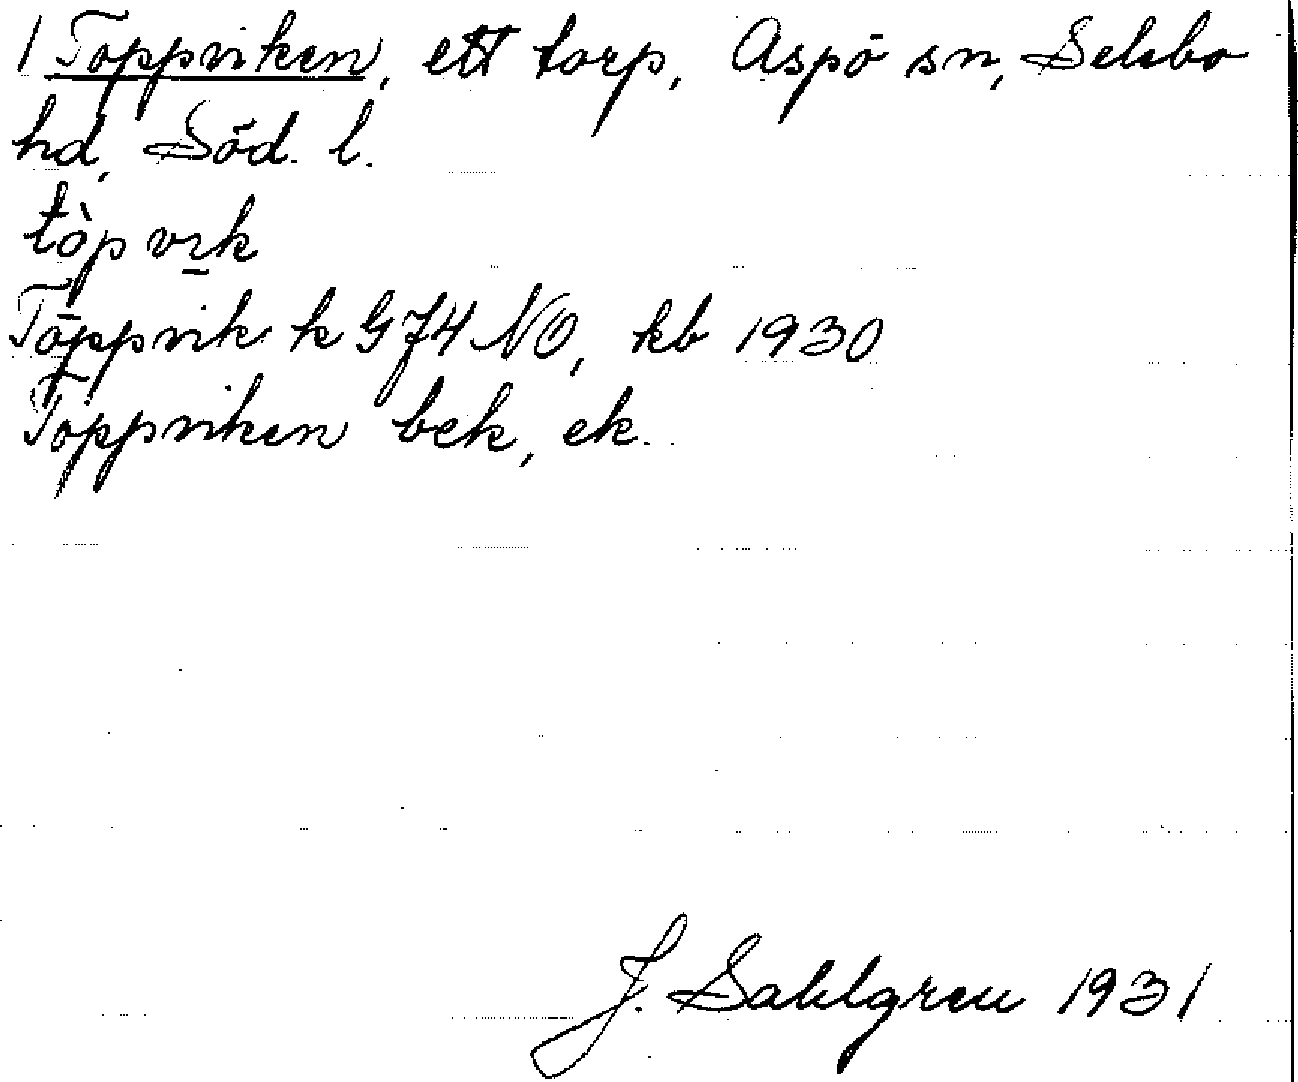 1 Toppviken, ett torp, Aspö sn, Selebo
hd, Söd. l.
tòpvɪk
Töppvik k G 74 NO, kb 1930
Toppviken bek, ek.
J. Sahlgren 1931